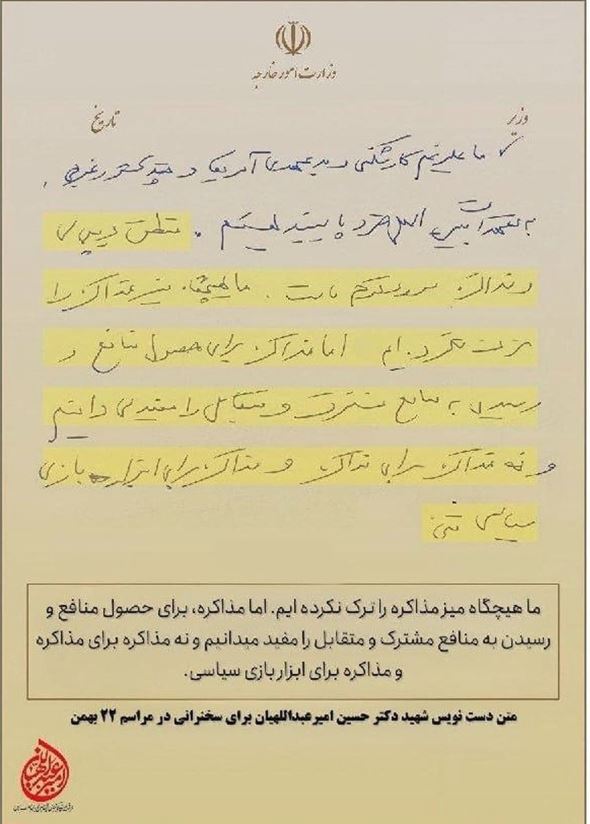 وزارت امور خارجه
وزیر
تاریخ
ما علیرغم کارشکنی و بدعهدی آمریکا و چند کشور غربی،
به تعهدات بین المللی خود پایبند هستیم. منطق دیپلماسی
و مذاکره
ما هیچگاه میز مذاکره را
ترک نکرده ایم اما مذاکره برای حصول منافع و
رسیدن به منافع مشترک و متقابل را مفید می دانیم
و نه مذاکره برای مذاکره و مذاکره برای ابزار بازی
سیاسی
ما هیچگاه میز مذاکره را ترک نکرده ایم. اما مذاکره، برای حصول منافع و
رسیدن به منافع مشترک و متقابل را مفید میدانیم و نه مذاکره برای مذاکره
و مذاکره برای ابزار بازی سیاسی.
متن دست نویس شهید دکتر حسین امیرعبداللهیان برای سخنرانی در مراسم ۲۲ بهمن